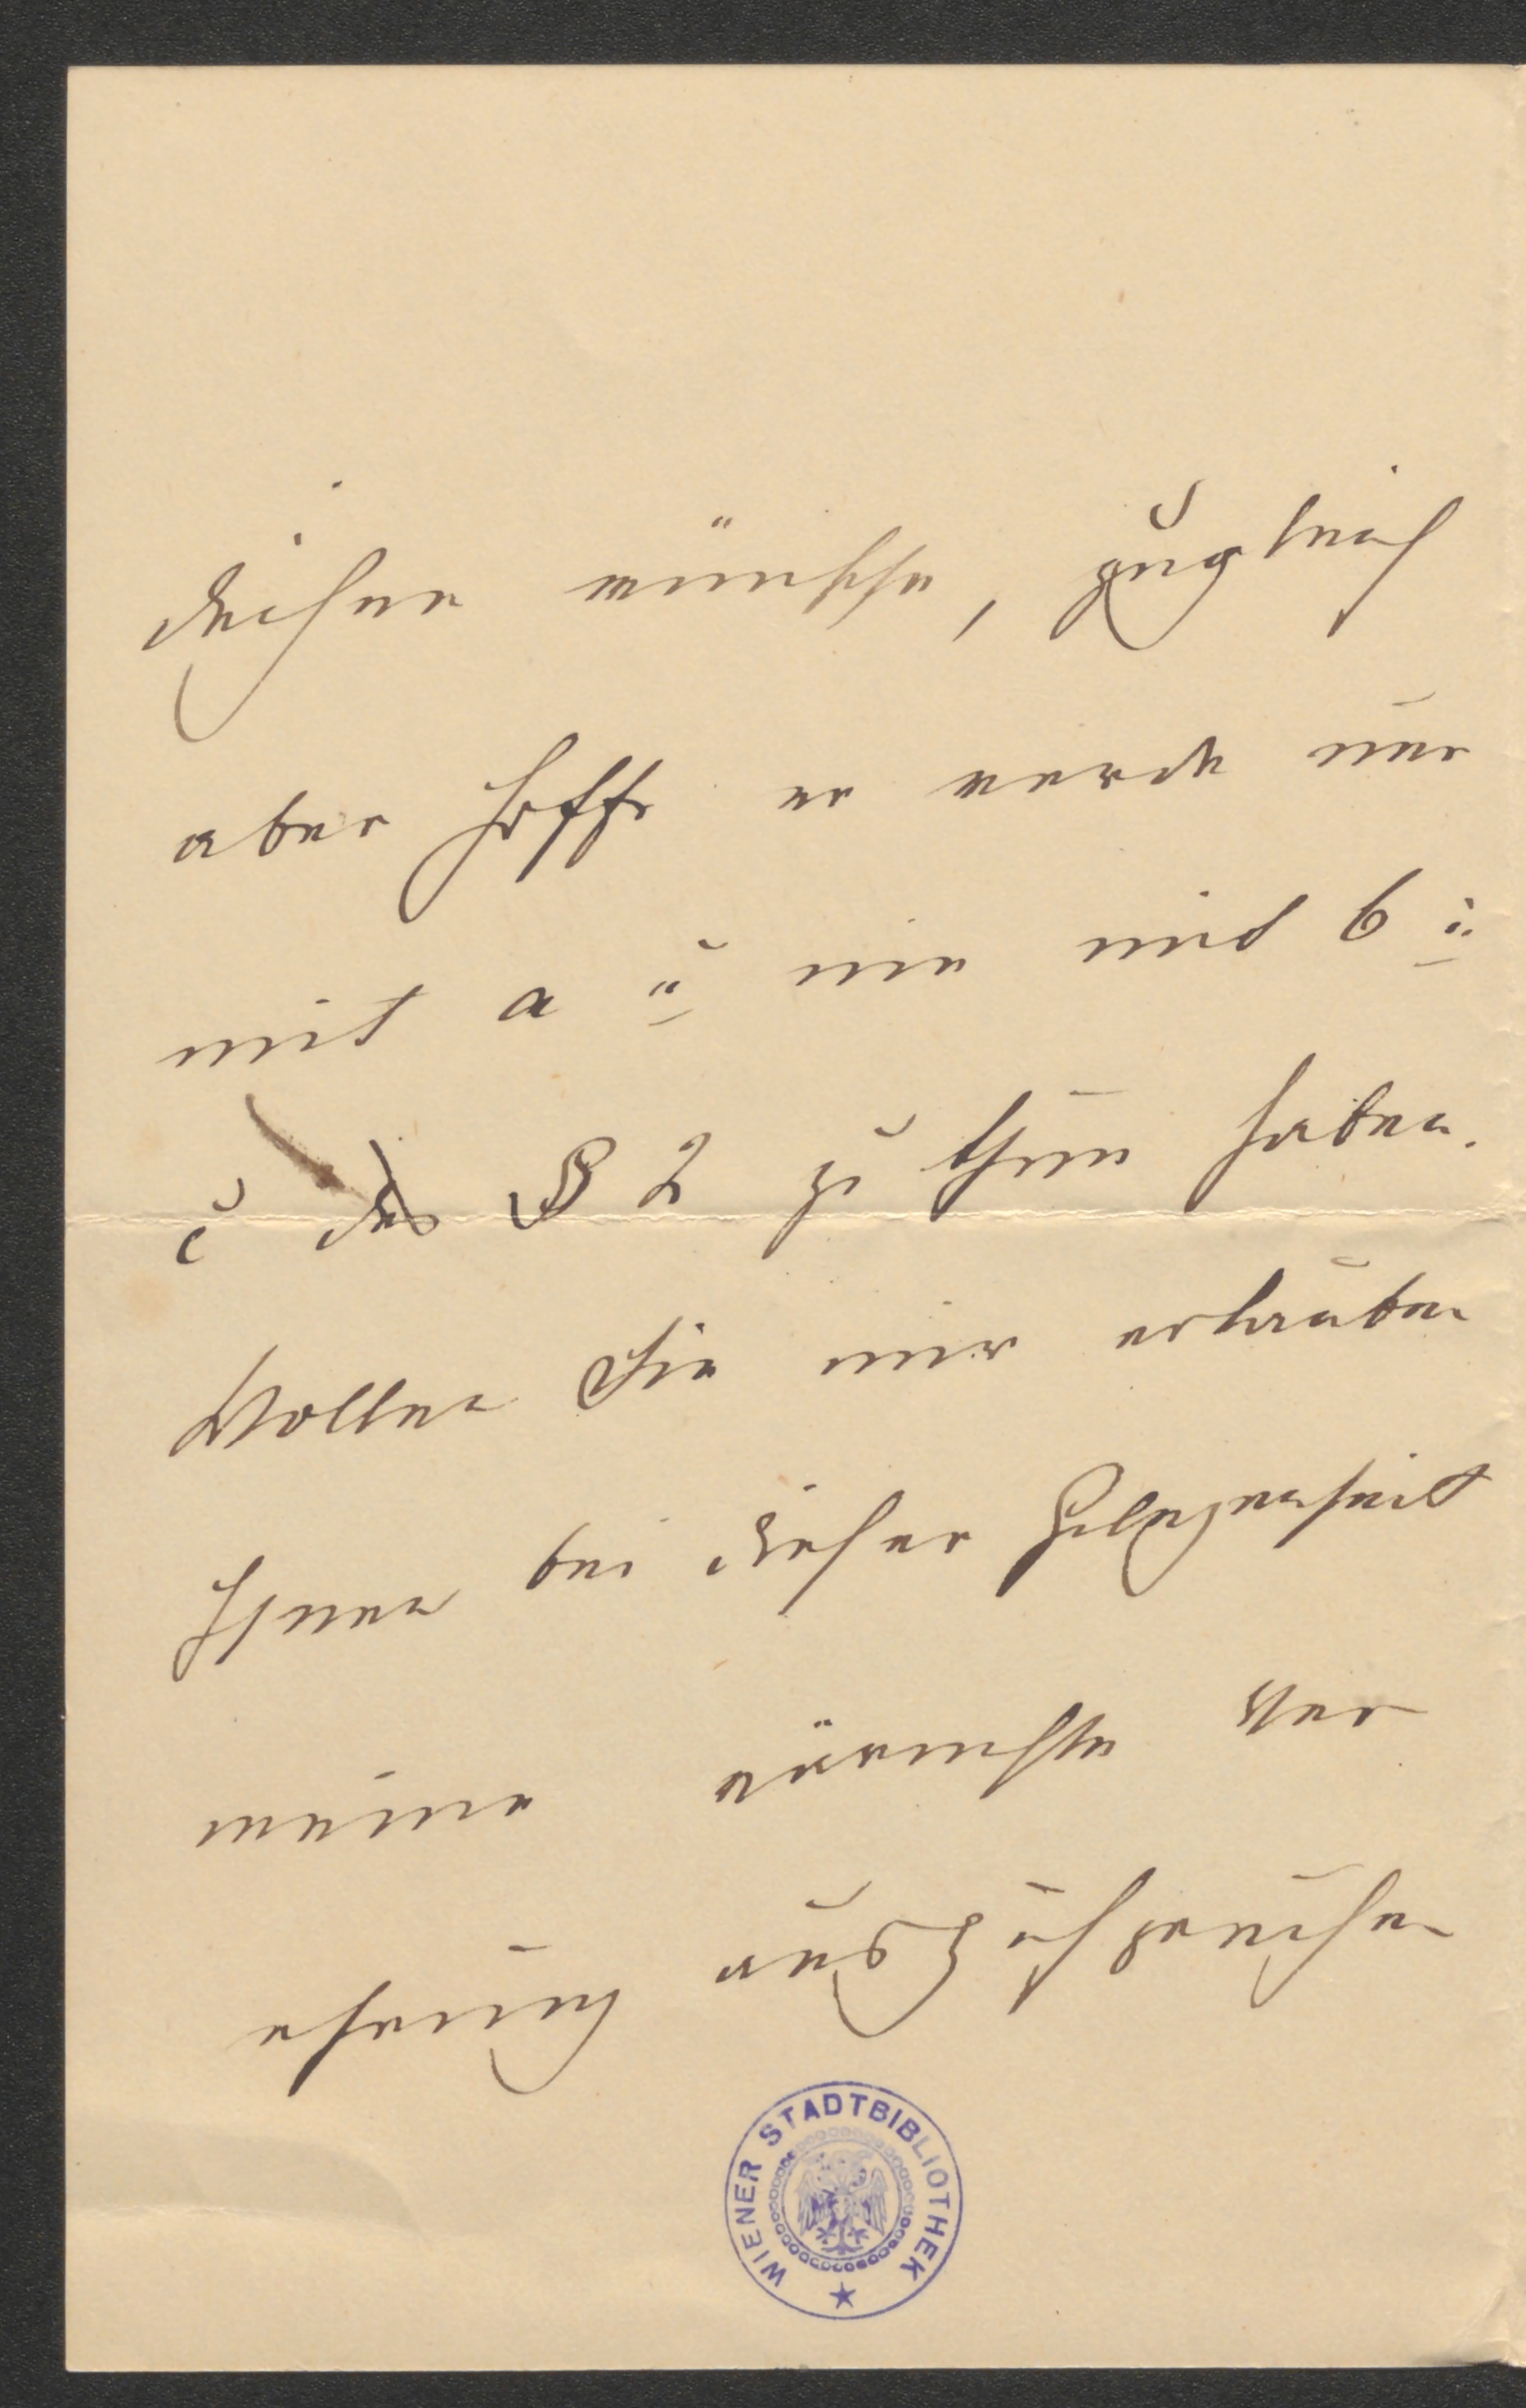 deihen wünsche, zugleich
aber hoffe er werde nur
mit a u nie mit b u
c des § 2 zu thun haben.
Wollen Sie mir erlauben
Ihnen bei dieser Gelegenheit
meine wärmste Ver
ehrung auszusprechen
WIENER STADTBIBLIOTHEK